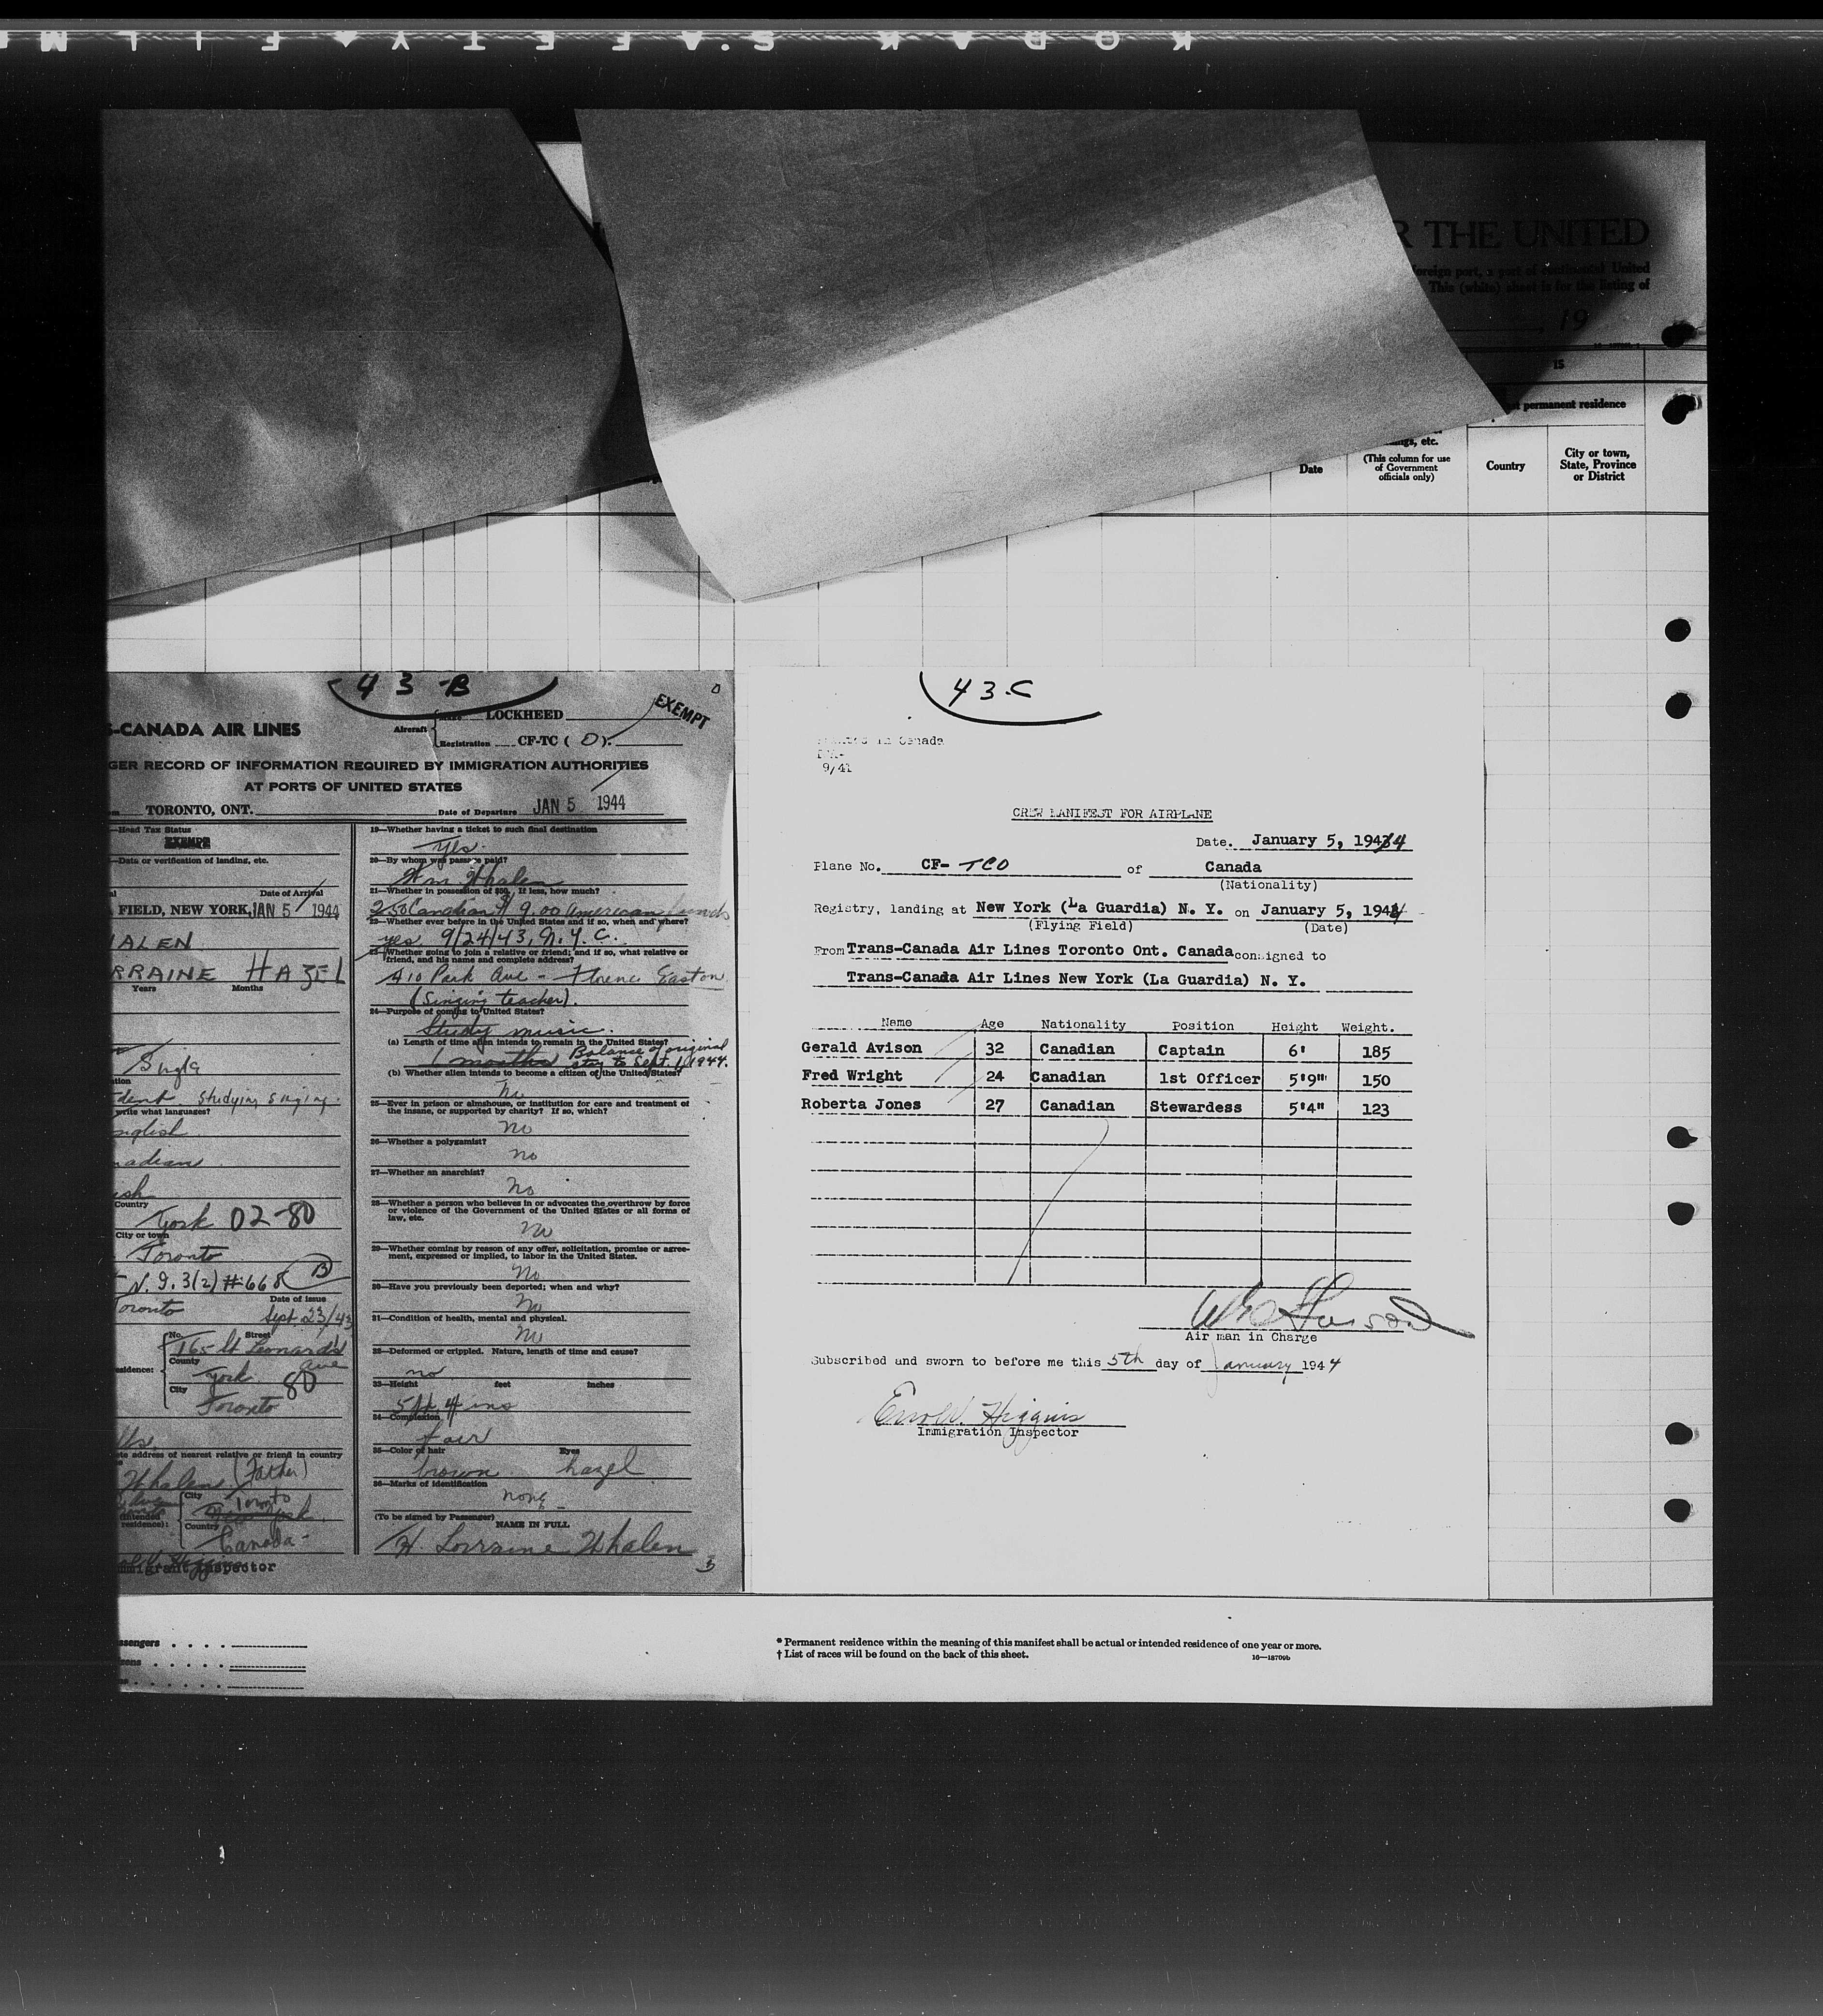 KODAK SAFETY FILM
R THE UNITED
foreign port, a port of continental United
This (white) sheet is for the listing of
, 19
IS
permanent residence
ngs, etc.
Date
(This column for use
of Government
officials only)
Country
City or town,
State, Province
or District
43-B
S-CANADA AIR LINES
Aircraft
LOCKHEED
EXEMPT
Registration CF-TC ( O ).
GER RECORD OF INFORMATION REQUIRED BY IMMIGRATION AUTHORITIES
AT PORTS OF UNITED STATES
TORONTO, ONT.
Date of Departure JAN 5 1944
Head Tax Status
EXEMPT
Data or verification of landing, etc.
Date of Arrival
FIELD, NEW YORK, JAN 5 1944
HALEN
RRAINE HAZEL
Years Months
Single
dent Studying singing.
write what languages?
nglish
nadian
ish
Country
York 02-80
City or town
Toronto
N.9.3(2) #668 B
Date of issue
oronto Sept 23/43
No. Street
165 St Leonards Ave
County
York 80
City
Toronto
ete address of nearest relative or friend in country
Whalen (Father)
City Toronto
Country
Canada -
mmigrant Inspector
19—Whether having a ticket to such final destination
Yes.
20—By whom was passage paid?
Wm Whalen
21—Whether in possession of $50. If less, how much?
250 Canadian $ 9.00 American funds
22—Whether ever before in the United States and if so, when and where?
yes 9/24/43, N.Y.C.
23—Whether going to join a relative or friend; and if so, what relative or
friend, and his name and complete address?
410 Park Ave - Florence Easton
(Singing teacher).
24—Purpose of coming to United States?
Study music.
(a) Length of time alien intends to remain in the United States?
months Balance of original
stay to Sept. 1, 1944.
(b) Whether alien intends to become a citizen of the United States?
No
25—Ever in prison or almshouse, or institution for care and treatment of
the insane, or supported by charity? If so, which?
No
26—Whether a polygamist?
No
27—Whether an anarchist?
No
28—Whether a person who believes in or advocates the overthrow by force
or violence of the Government of the United States or all forms of
law, etc.
No
29—Whether coming by reason of any offer, solicitation, promise or agree-
ment, expressed or implied, to labor in the United States.
No
30—Have you previously been deported; when and why?
No
31—Condition of health, mental and physical.
No
32—Deformed or crippled. Nature, length of time and cause?
no
33—Height feet inches
5 ft. 4 ins
34—Complexion
fair
35—Color of hair Eyes
brown hazel
36—Marks of identification
none
(To be signed by Passenger)
NAME IN FULL
H. Lorraine Whalen
3
43-C
in Canada
9/41
CREW MANIFEST FOR AIRPLANE
Date. January 5, 1944
Plane No. CF- TCO of Canada
(Nationality)
Registry, landing at New York (La Guardia) N. Y. on January 5, 1944
(Flying Field) (Date)
From Trans-Canada Air Lines Toronto Ont. Canada consigned to
Trans-Canada Air Lines New York (La Guardia) N. Y.
Name Age Nationality Position Height Weight.
Gerald Avison 32 Canadian Captain 6' 185
Fred Wright 24 Canadian 1st Officer 5'9" 150
Roberta Jones 27 Canadian Stewardess 5'4" 123
Air man in Charge
Subscribed and sworn to before me this 5th day of January 1944
Higgins
Immigration Inspector
ssengers
* Permanent residence within the meaning of this manifest shall be actual or intended residence of one year or more.
† List of races will be found on the back of this sheet.
16—18709b